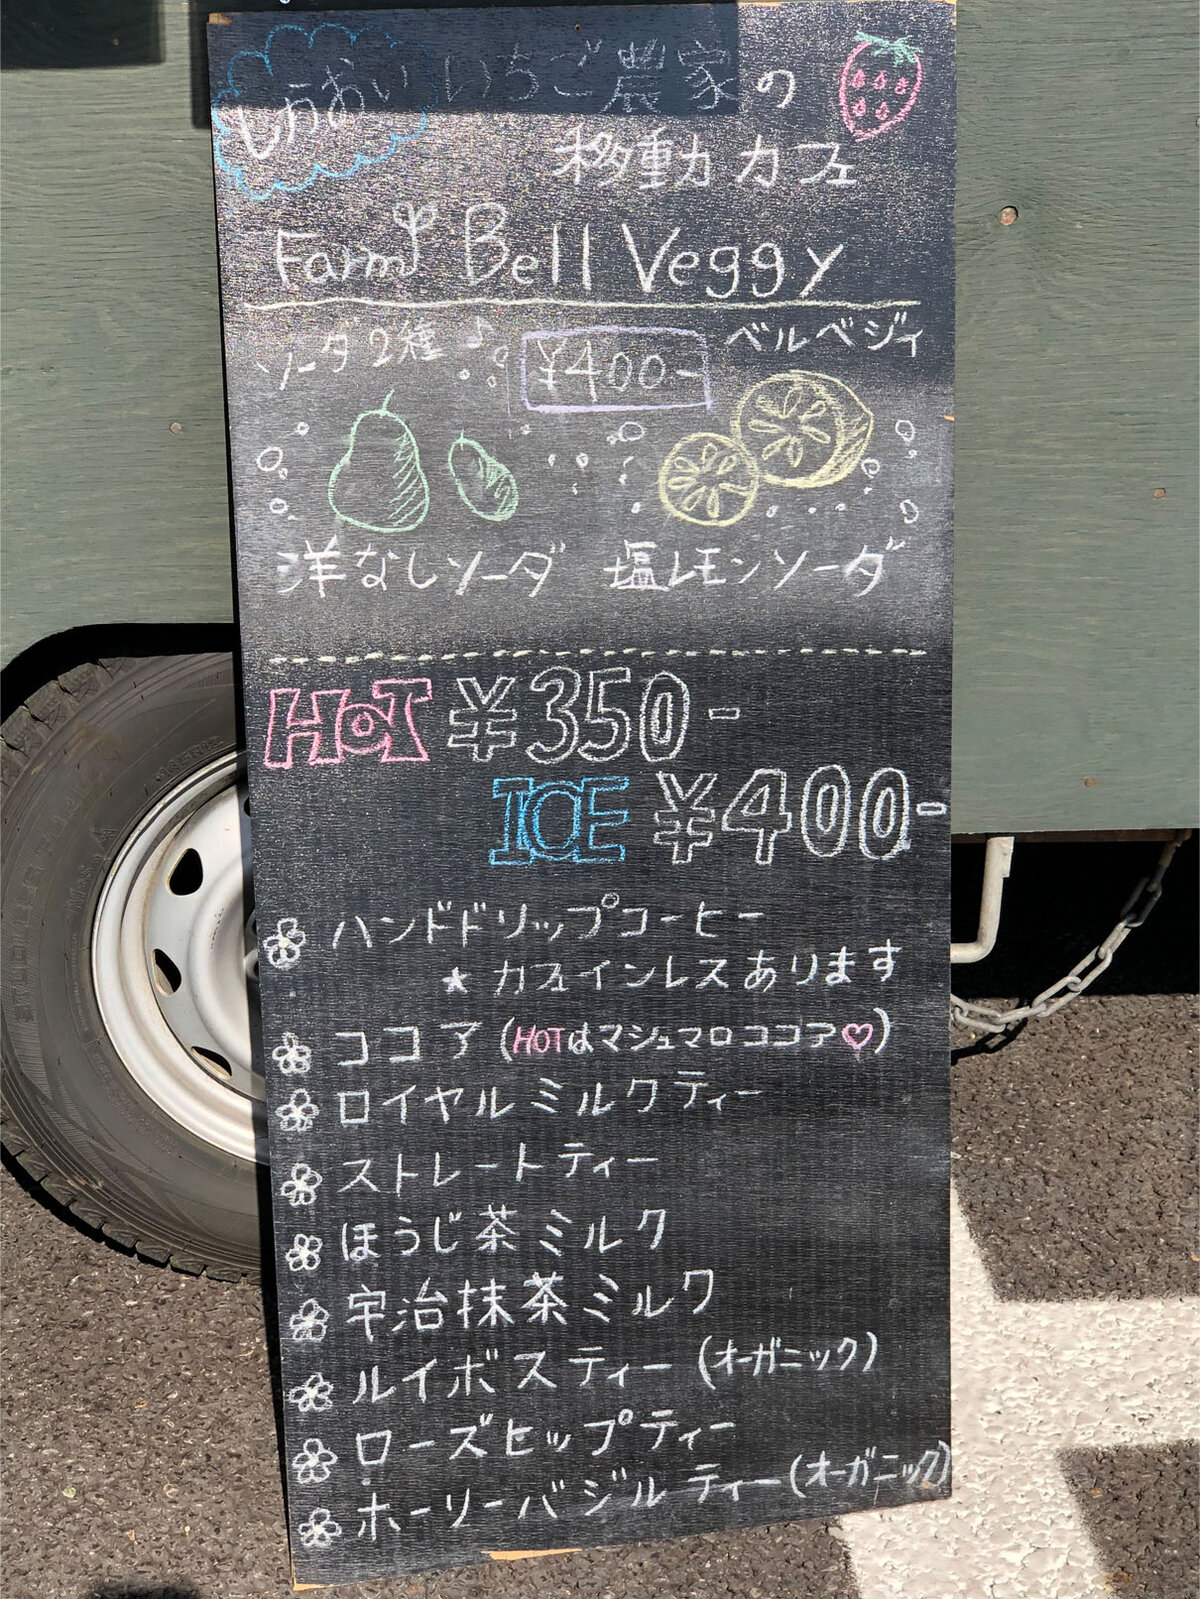 しかおい いちご農家の
移動カフェ
Farm Bell Veggy
ソーダ2種♪ ¥400- ベルベジィ
洋なしソーダ 塩レモンソーダ
HOT ¥350-
ICE ¥400-
ハンドドリップコーヒー
★カフェインレスあります
ココア(HOTはマシュマロココア♡)
ロイヤルミルクティー
ストレートティー
ほうじ茶ミルク
宇治抹茶ミルク
ルイボスティー(オーガニック)
ローズヒップティー
ホーリーバジルティー(オーガニック)